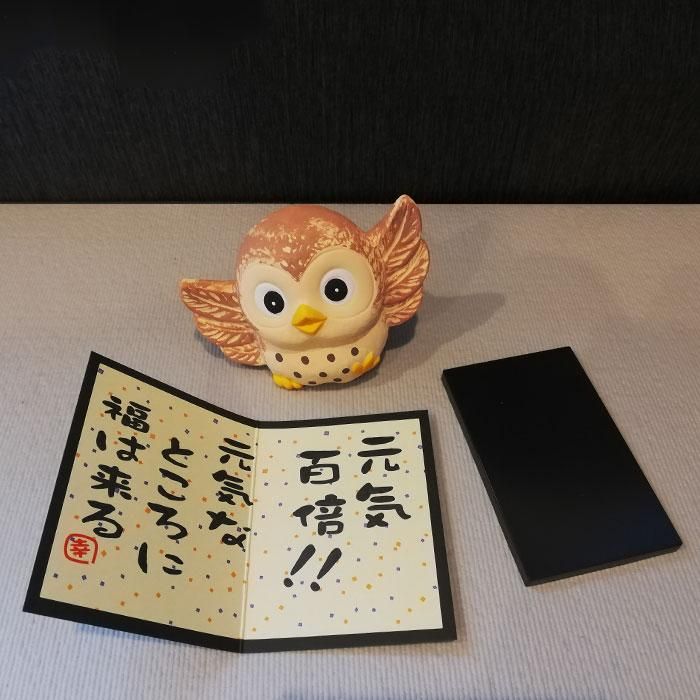 元気
百倍!!
元気な
ところに
福は来る
幸